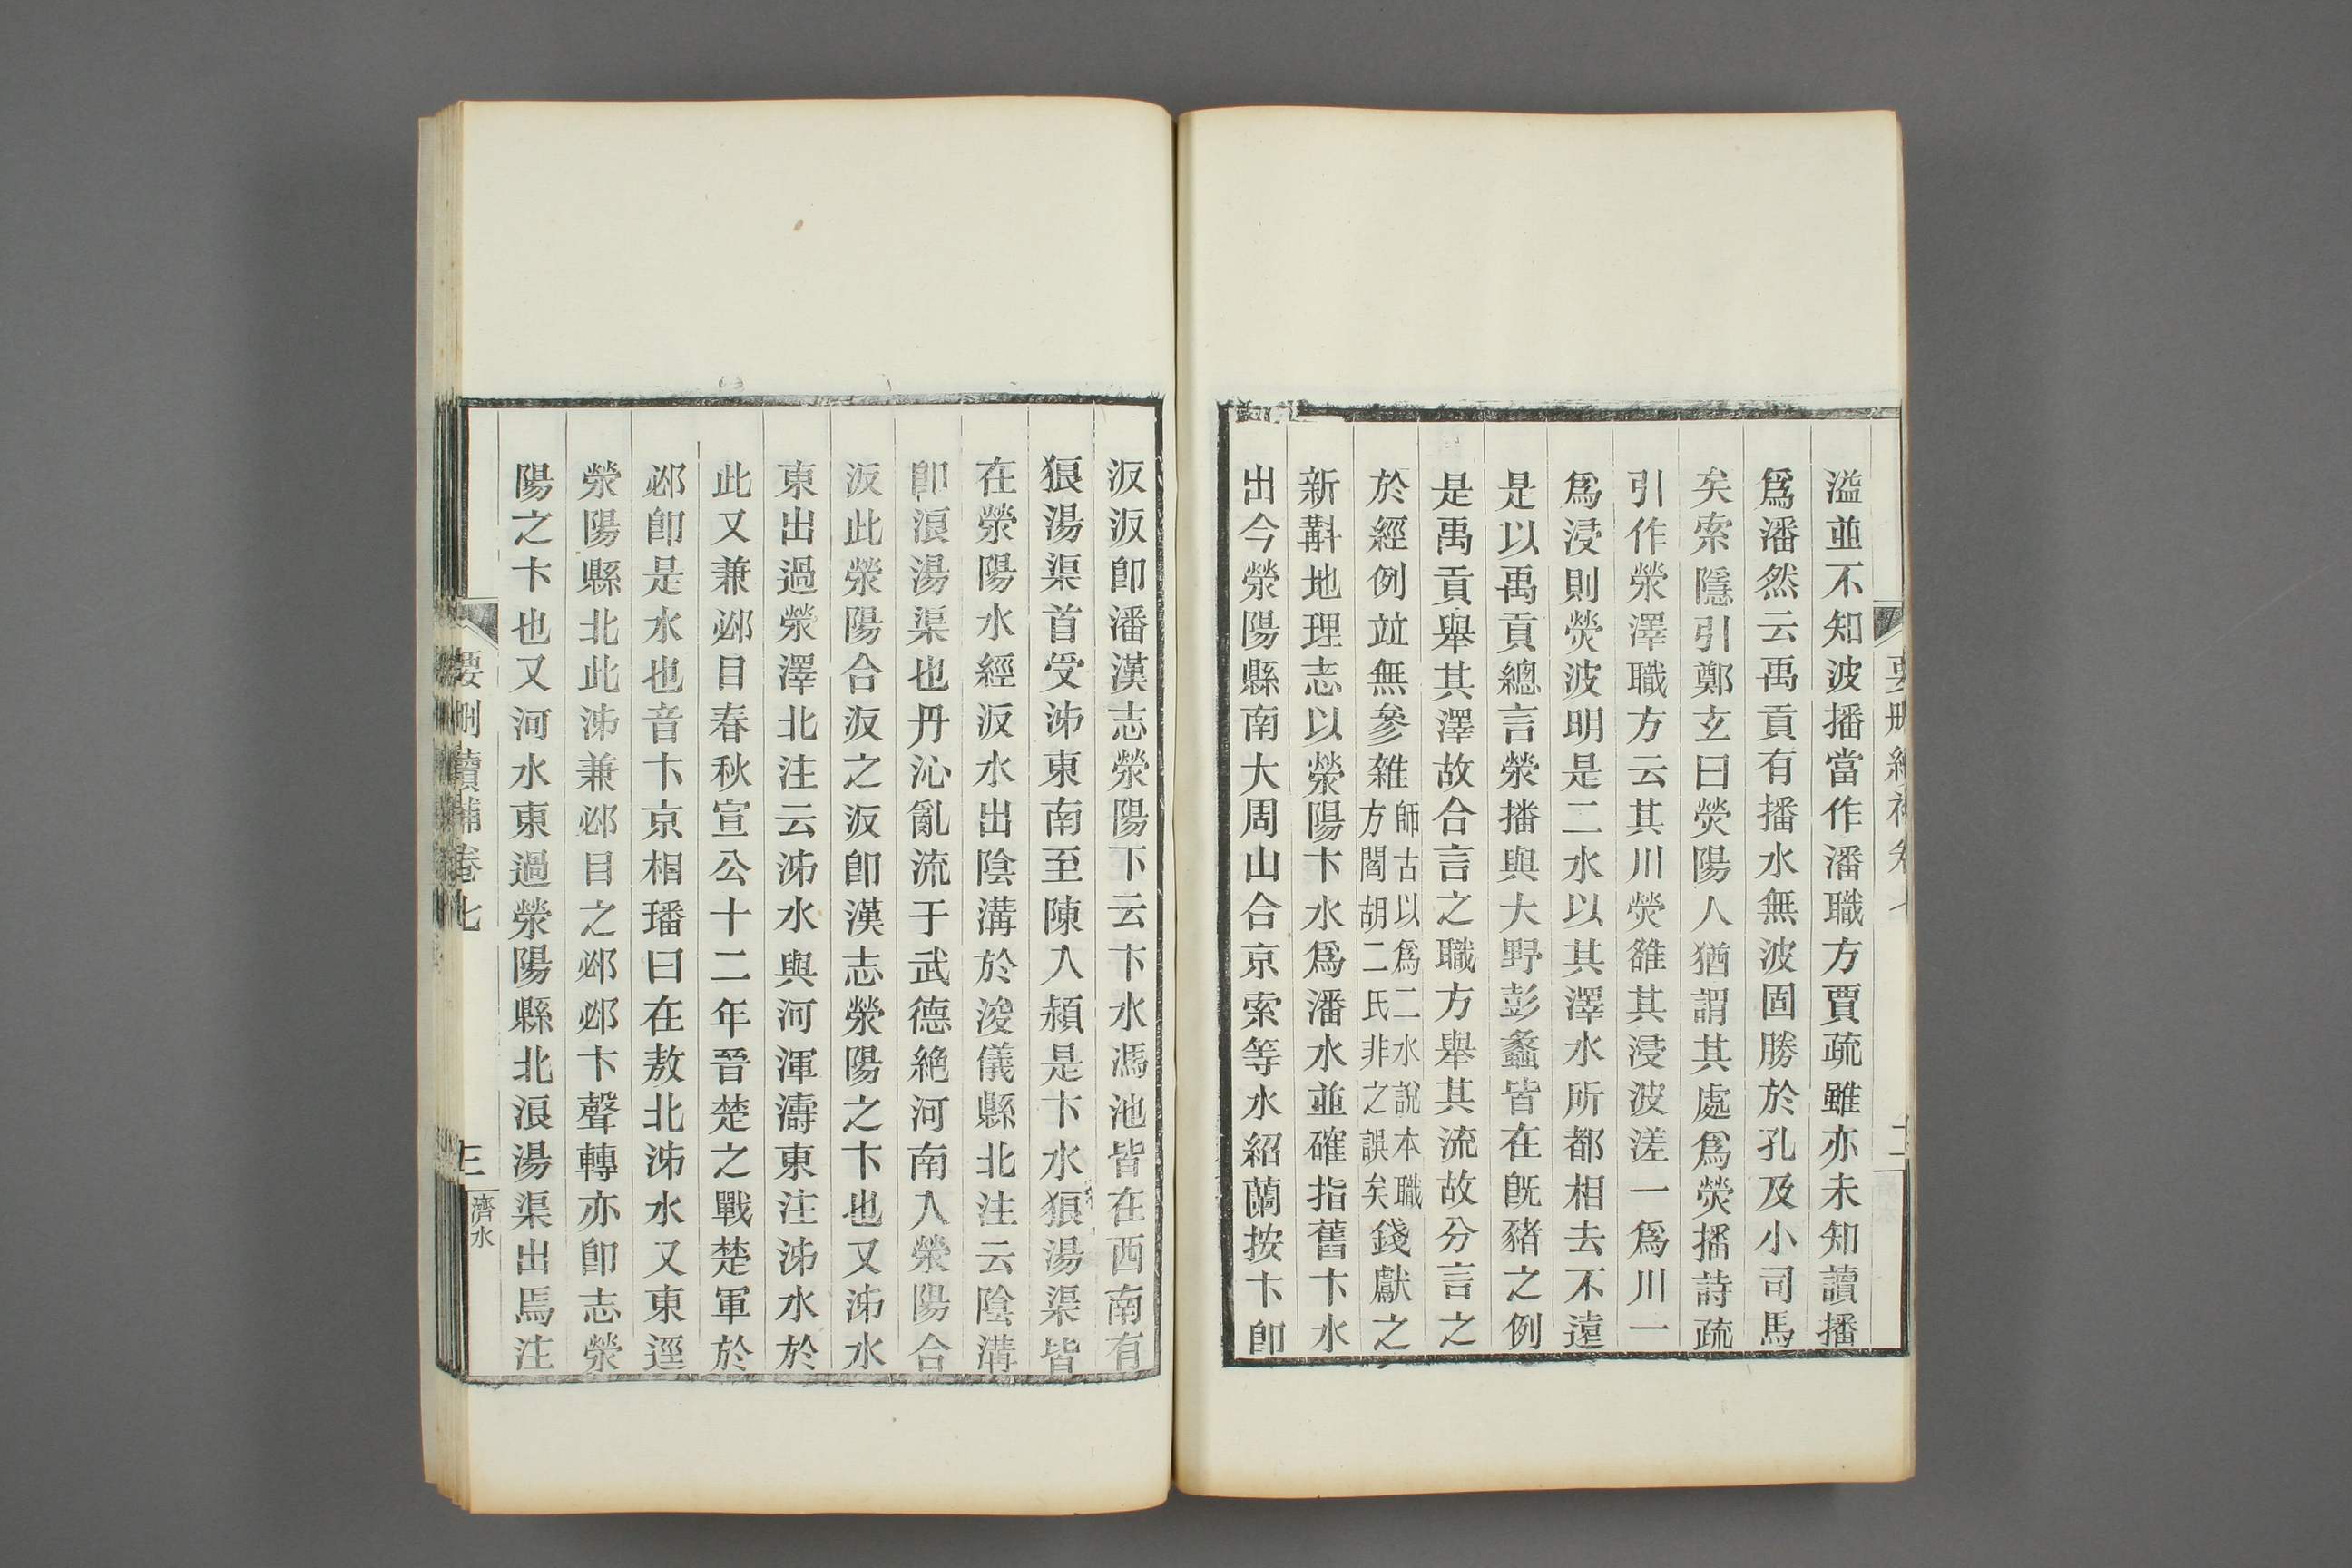 溢並不知波播當作潘職方賈疏雖亦未知讀播
爲潘然云禹貢有播水無波固勝於孔及小司馬
矣索隱引鄭玄曰熒陽人猶謂其處爲熒播詩疏
引作滎澤職方云其川熒雒其浸波溠一爲川一
爲浸則熒波明是二水以其澤水所都相去不遠
是以禹貢總言滎播與大野彭蠡皆在旣豬之例
是禹貢舉其澤故合言之職方舉其流故分言之
於經例竝無參雜師古以爲二水說本職方閻胡二氏非之誤矣錢獻之
新斠地理志以滎陽卞水爲潘水並確指舊卞水
出今滎陽縣南大周山合京索等水紹蘭按卞卽
汳汳卽潘漢志滎陽下云卞水馮池皆在西南有
狼湯渠首受泲東南至陳入潁是卞水狼湯渠皆
在滎陽水經汳水出陰溝於浚儀縣北注云陰溝
卽浪湯渠也丹沁亂流于武德絕河南入滎陽合
汳此滎陽合汳之汳卽漢志滎陽之卞也又泲水
東出過滎澤北注云泲水與河渾濤東注泲水於
此又兼邲目春秋宣公十二年晉楚之戰楚軍於
邲卽是水也音卞京相璠曰在敖北泲水又東逕
滎陽縣北此泲兼邲目之邲邲卞聲轉亦卽志滎
陽之卞也又河水東過滎陽縣北浪湯渠出焉注
卷七
三
濟水